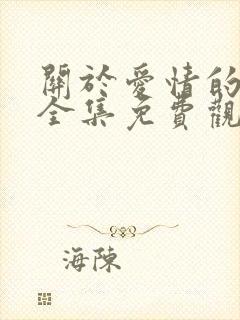 關於愛情的
全集免費觀
海陳